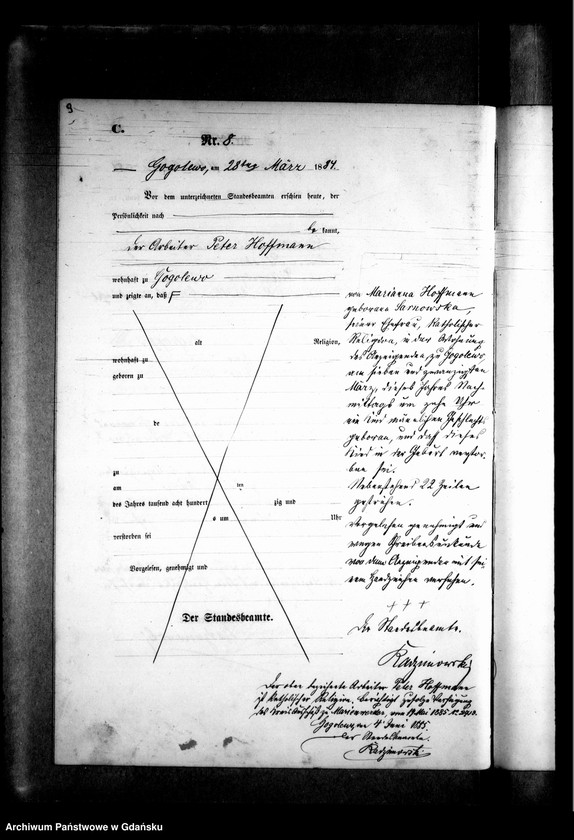 9
C.
Nr. 8.
Gogolewo, am 28ten März 1884.
Vor dem unterzeichneten Standesbeamten erschien heute, der
Persönlichkeit nach
be kannt,
der Arbeiter Peter Hoffmann
wohnhaft zu Gogolewo
und zeigte an, daß
alt Religion,
wohnhaft zu
geboren zu
de
zu
am ten
des Jahres tausend acht hundert zig und
s um Uhr
verstorben sei
Vorgelesen, genehmigt und
Der Standesbeamte.
von Marianna Hoffmann
geborenen Sarnowska,
seiner Ehefrau, katholischer
Religion, in der Wohnung
des Anzeigenden zu Gogolewo,
am sieben und zwanzigsten
März, dieses Jahres Nach-
mittags um zehn Uhr
ein Kind männlichen Geschlechts
geboren, und daß dieses
Kind in der Geburt verstor-
ben sei.
Nebenstehend 22 Zeilen
gestrichen.
Vorgelesen genehmigt und
wegen Schreibensunkunde
von dem Anzeigenden mit sei-
nem Handzeichen versehen.
+ + +
Der Standesbeamte.
Radzimowski
Der oben bezeichnete Arbeiter Peter Hoffmann
ist katholischer Religion, berichtigt zufolge Verfügung
des Kreis Ausschuß zu Marienwerder, vom Mai 1885
Gogolewo, am 4 Juni 1885.
Der Standesbeamte.
Radzimowski
Archiwum Państwowe w Gdańsku